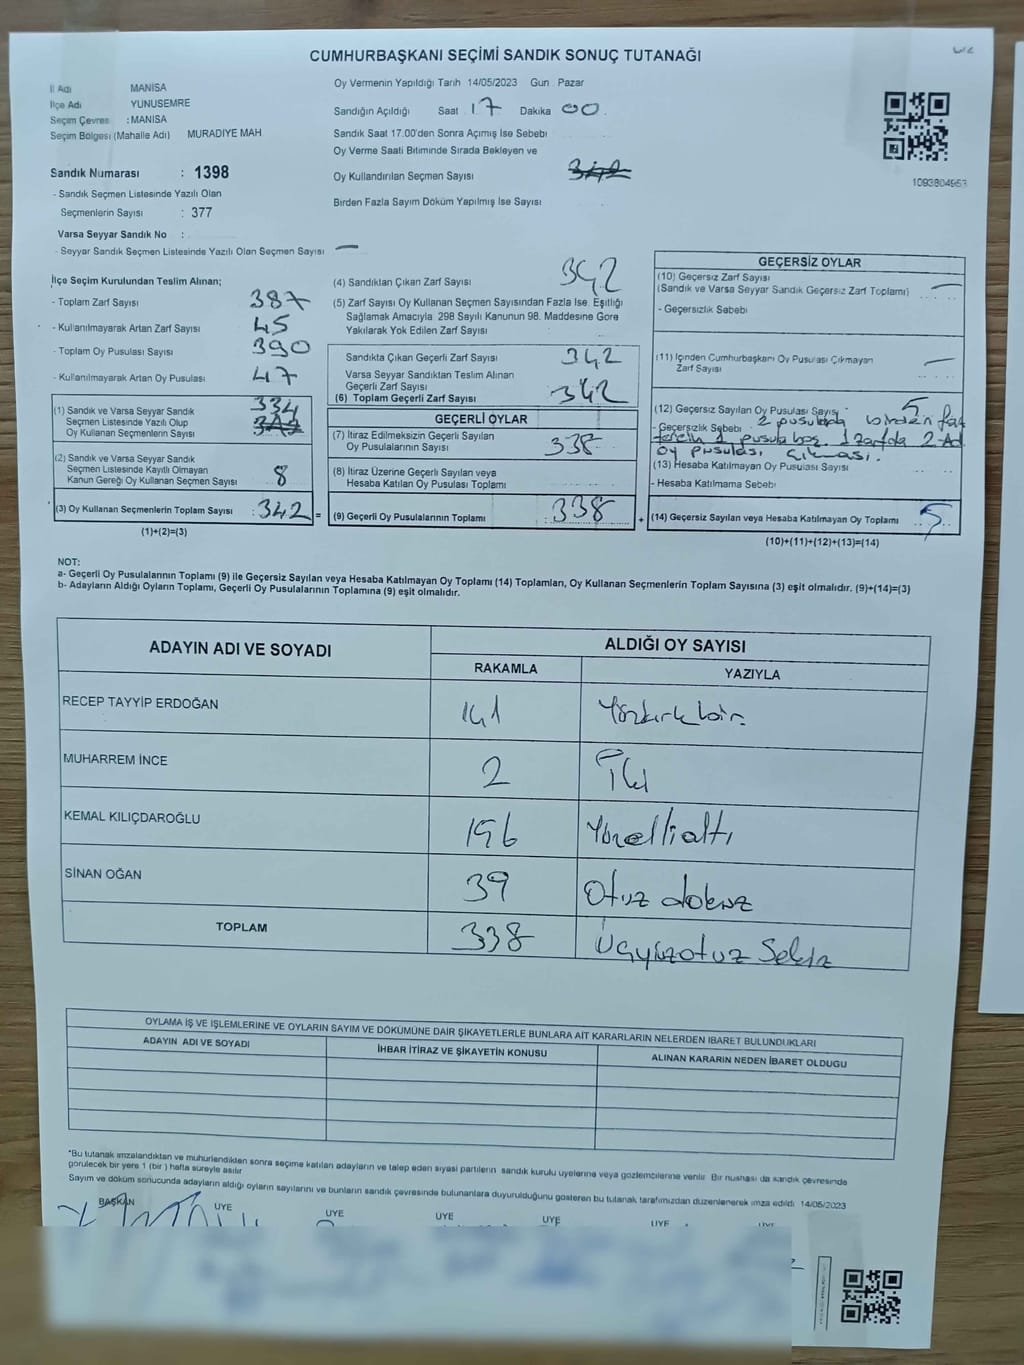 CUMHURBAŞKANI SEÇİMİ SANDIK SONUÇ TUTANAĞI
İl Adı MANİSA
İlçe Adı YUNUSEMRE
Seçim Çevres : MANİSA
Seçim Bölgesi (Mahalle Adı) MURADİYE MAH
Sandık Numarası : 1398
- Sandık Seçmen Listesinde Yazılı Olan
Seçmenlerin Sayısı : 377
Varsa Seyyar Sandık No :
- Seyyar Sandık Seçmen Listesinde Yazılı Olan Seçmen Sayısı —
Oy Vermenin Yapıldığı Tarih 14/05/2023 Gün Pazar
Sandığın Açıldığı Saat 17 Dakika 00
Sandık Saat 17.00'den Sonra Açımış İse Sebebi
Oy Verme Saati Bitiminde Sırada Bekleyen ve
Oy Kullandırılan Seçmen Sayısı 342
Birden Fazla Sayım Döküm Yapılmış İse Sayısı
1093804953
İlçe Seçim Kurulundan Teslim Alınan;
- Toplam Zarf Sayısı 387
- Kullanılmayarak Artan Zarf Sayısı 45
- Toplam Oy Pusulası Sayısı 390
- Kullanılmayarak Artan Oy Pusulası 47
(1) Sandık ve Varsa Seyyar Sandık
Seçmen Listesinde Yazılı Olup
Oy Kullanan Seçmenlerin Sayısı 334
(2) Sandık ve Varsa Seyyar Sandık
Seçmen Listesinde Kayıtlı Olmayan
Kanun Gereği Oy Kullanan Seçmen Sayısı 8
(3) Oy Kullanan Seçmenlerin Toplam Sayısı : 342 =
(1)+(2)=(3)
(4) Sandıktan Çıkan Zarf Sayısı 342
(5) Zarf Sayısı Oy Kullanan Seçmen Sayısından Fazla İse, Eşitliği
Sağlamak Amacıyla 298 Sayılı Kanunun 98. Maddesine Göre
Yakılarak Yok Edilen Zarf Sayısı :
Sandıkta Çıkan Geçerli Zarf Sayısı 342
Varsa Seyyar Sandıktan Teslim Alınan
Geçerli Zarf Sayısı
(6) Toplam Geçerli Zarf Sayısı 342
GEÇERLİ OYLAR
(7) İtiraz Edilmeksizin Geçerli Sayılan
Oy Pusulasının Sayısı 338
(8) İtiraz Üzerine Geçerli Sayılan veya
Hesaba Katılan Oy Pusulası Toplamı
(9) Geçerli Oy Pusulalarının Toplamı 338 +
GEÇERSİZ OYLAR
(10) Geçersiz Zarf Sayısı
(Sandık ve Varsa Seyyar Sandık Geçersiz Zarf Toplamı) —
- Geçersizlik Sebebi
(11) İçinden Cumhurbaşkanı Oy Pusulası Çıkmayan
Zarf Sayısı —
(12) Geçersiz Sayılan Oy Pusulası Sayısı 5
- Geçersizlik Sebebi 2 pusulada birden faz
tercih 1 pusula boş. 1 zarfda 2 Ad
oy pusulası çıkması.
(13) Hesaba Katılmayan Oy Pusulası Sayısı
- Hesaba Katılmama Sebebi
(14) Geçersiz Sayılan veya Hesaba Katılmayan Oy Toplamı 5
(10)+(11)+(12)+(13)=(14)
NOT:
a- Geçerli Oy Pusulalarının Toplamı (9) ile Geçersiz Sayılan veya Hesaba Katılmayan Oy Toplamı (14) Toplamları, Oy Kullanan Seçmenlerin Toplam Sayısına (3) eşit olmalıdır. (9)+(14)=(3)
b- Adayların Aldığı Oyların Toplamı, Geçerli Oy Pusulalarının Toplamına (9) eşit olmalıdır.
ADAYIN ADI VE SOYADI ALDIĞI OY SAYISI
RAKAMLA YAZIYLA
RECEP TAYYİP ERDOĞAN 141 Yüzkırkbir
MUHARREM İNCE 2 İki
KEMAL KILIÇDAROĞLU 156 Yüzelliattı
SİNAN OĞAN 39 Otuz dokuz
TOPLAM 338 Üçyüzotuz Sekiz
OYLAMA İŞ VE İŞLEMLERİNE VE OYLARIN SAYIM VE DÖKÜMÜNE DAİR ŞİKAYETLERLE BUNLARA AİT KARARLARIN NELERDEN İBARET BULUNDUKLARI
ADAYIN ADI VE SOYADI İHBAR İTİRAZ VE ŞİKAYETİN KONUSU ALINAN KARARIN NEDEN İBARET OLDUĞU
*Bu tutanak imzalandıktan ve mühürlendikten sonra seçime katılan adayların ve talep eden siyasi partilerin sandık kurulu üyelerine veya gözlemcilerine verilir. Bir nushası da sandık çevresinde
görülecek bir yere 1 (bir) hafta süreyle asılır
Sayım ve döküm sonucunda adayların aldığı oyların sayılarını ve bunların sandık çevresinde bulunanlara duyurulduğunu gösteren bu tutanak tarafımızdan düzenlenerek imza edildi 14/05/2023
BAŞKAN ÜYE ÜYE ÜYE ÜYE ÜYE ÜYE